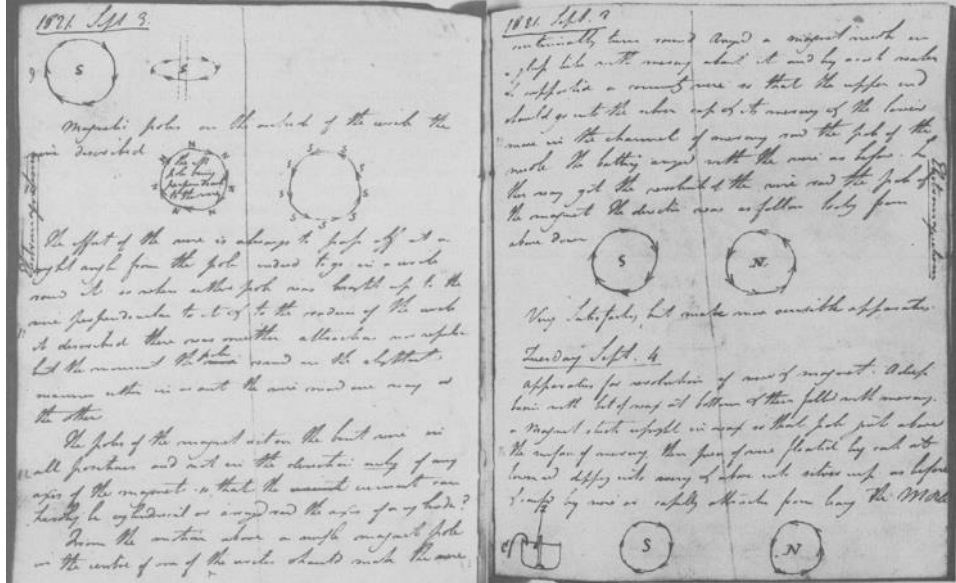 1821 Sept 3.
S
Magnetic poles on the outside of the circle the
wire described
N N N N N N N N
pole being
perpendicular
to the wire
S S S S S S S S
Electromagnetism
The effort of the wire is always to pass off at a
right angle from the pole indeed to go in a circle
round it so when either pole was brought up to the
wire perpendicular to it & to the radius of the circle
it described there was neither attraction nor repulsion
but the moment the pole varied in the slightest
manner either in or out the wire moved one way or
the other
The poles of the magnet act on the bent wire in
all positions and not in the direction only of any
axis of the magnet so that the current can
hardly be cylindrical or arranged round the axis of a cylinder?
From the motion above a single magnet pole
in the centre of one of the circles should make the wire
1821. Sept. 3
continually turn round Arranged a magnet needle in
a glass tube with mercury about it and by a cork water
&c supported a connecting wire so that the upper end
should go into the silver cup & its mercury & the lower
move in the channel of mercury round the pole of the
needle The battery arranged with the wire as before. In
this way got the revolution of the wire round the pole of
the magnet The direction was as follows looking from
above down
Electromagnetism
S N
Very Satisfactory, but make more sensible apparatus.
Tuesday Sept. 4
apparatus for revolution of wire & magnet. A deep
basin with bit of wax at bottom & then filled with mercury.
a Magnet stuck upright in wax so that pole just above
the surface of mercury then piece of wire floated by cork at its
lower end dipping into mercury & above into silver cup as before
by wire from leaving the
S N